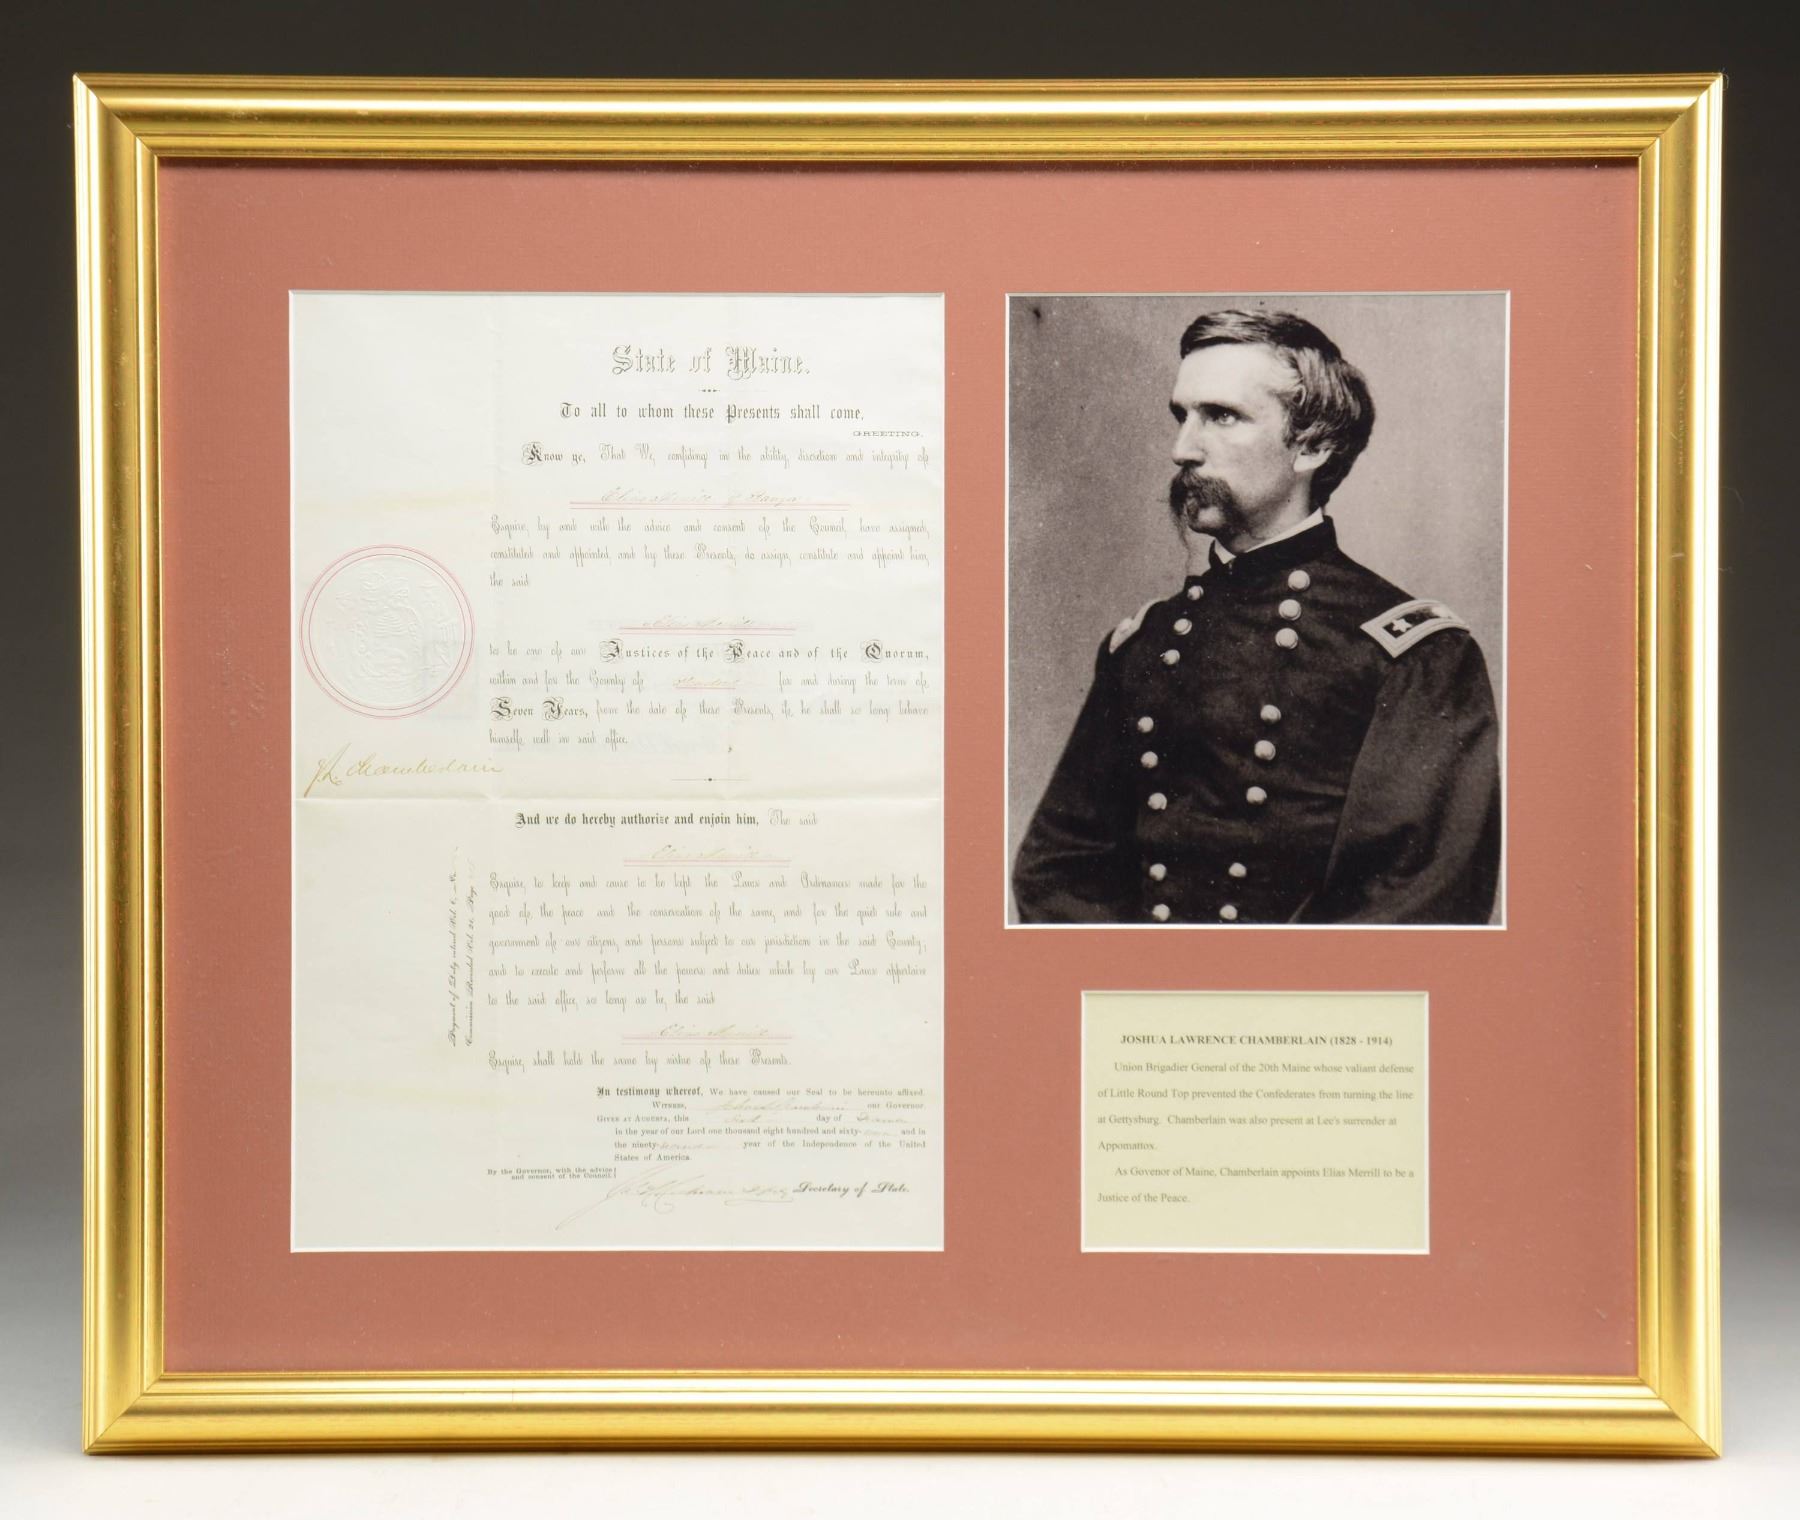 State of Maine.
To all to whom these Presents shall come,
GREETING.
Know ye, That We, confiding in the ability, discretion and integrity of
Elias Merrill of Bangor
Esquire, by and with the advice and consent of the Council, have assigned,
constituted and appointed, and by these Presents, do assign, constitute and appoint him,
the said
Elias Merrill
to be one of our Justices of the Peace and of the Quorum,
within and for the County of for and during the term of
Seven Years, from the date of these Presents, if he shall so long behave
himself well in said office.
J L Chamberlain
And we do hereby authorize and enjoin him, The said
Elias Merrill
Esquire, to keep and cause to be kept the Laws and Ordinances made for the
good of the peace and the conservation of the same, and for the quiet rule and
government of our citizens, and persons subject to our jurisdiction in the said County;
and to execute and perform all the powers and duties which by our Laws appertain
to the said office, so long as he, the said
Elias Merrill
Esquire, shall hold the same by virtue of these Presents.
In testimony whereof, We have caused our Seal to be hereunto affixed.
Witness, our Governor.
Given at Augusta, this day of
in the year of our Lord one thousand eight hundred and sixty- and in
the ninety- year of the Independence of the United
States of America.
By the Governor, with the advice
and consent of the Council.
Secretary of State.
Payment of Duty entered Vol. 6,
Commission Recorded Vol. 21, Page
JOSHUA LAWRENCE CHAMBERLAIN (1828 - 1914)
Union Brigadier General of the 20th Maine whose valiant defense
of Little Round Top prevented the Confederates from turning the line
at Gettysburg. Chamberlain was also present at Lee's surrender at
Appomattox.
As Govenor of Maine, Chamberlain appoints Elias Merrill to be a
Justice of the Peace.